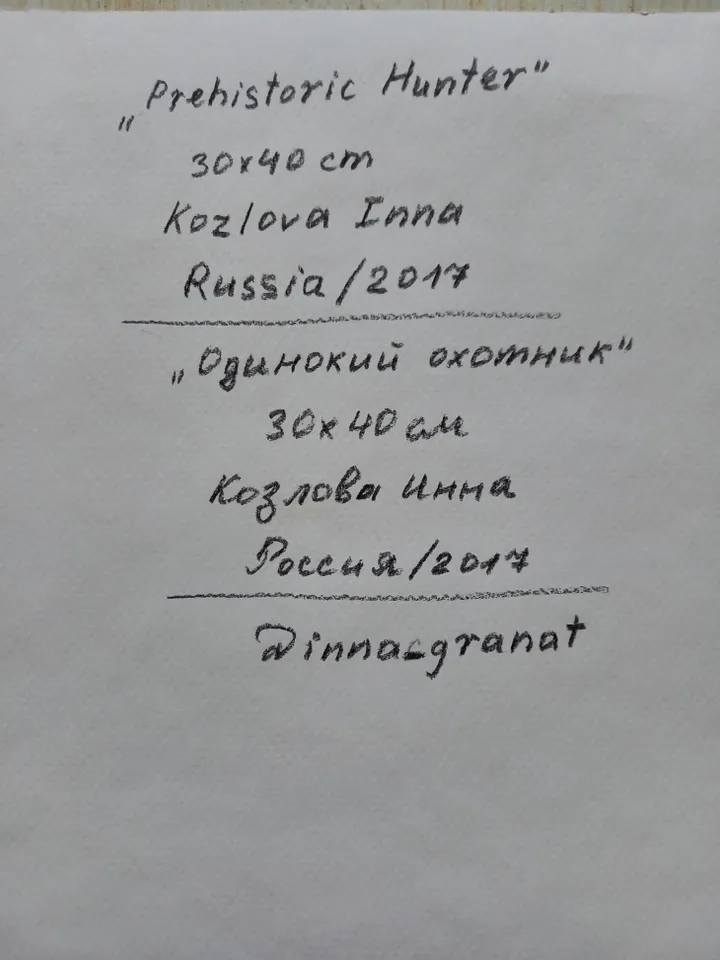 „Prehistoric Hunter"
30x40 cm
Kozlova Inna
Russia/2017
„Одинокий охотник"
30x40 см
Козлова Инна
Россия/2017
Dinna-granat